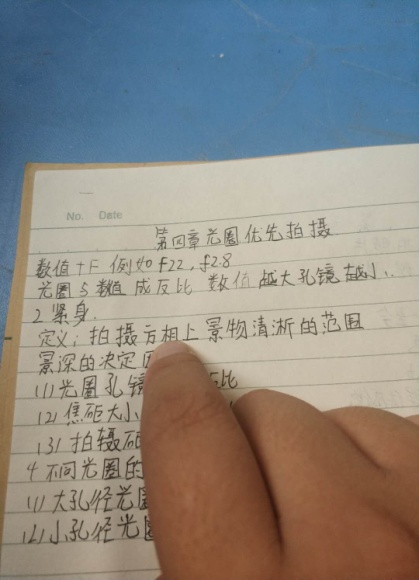 No. Date
第四章光圈优先拍摄
数值+F 例如f22,f2.8
光圈与数值成反比 数值越大孔镜越小.
2 紧身.
定义:拍摄方相上景物清淅的范围
景深的决定因
(1)光圈孔镜 比
(2)焦距大小
(3)拍摄距
4 不同光圈的
(1)大孔径光圈
(2)小孔径光圈